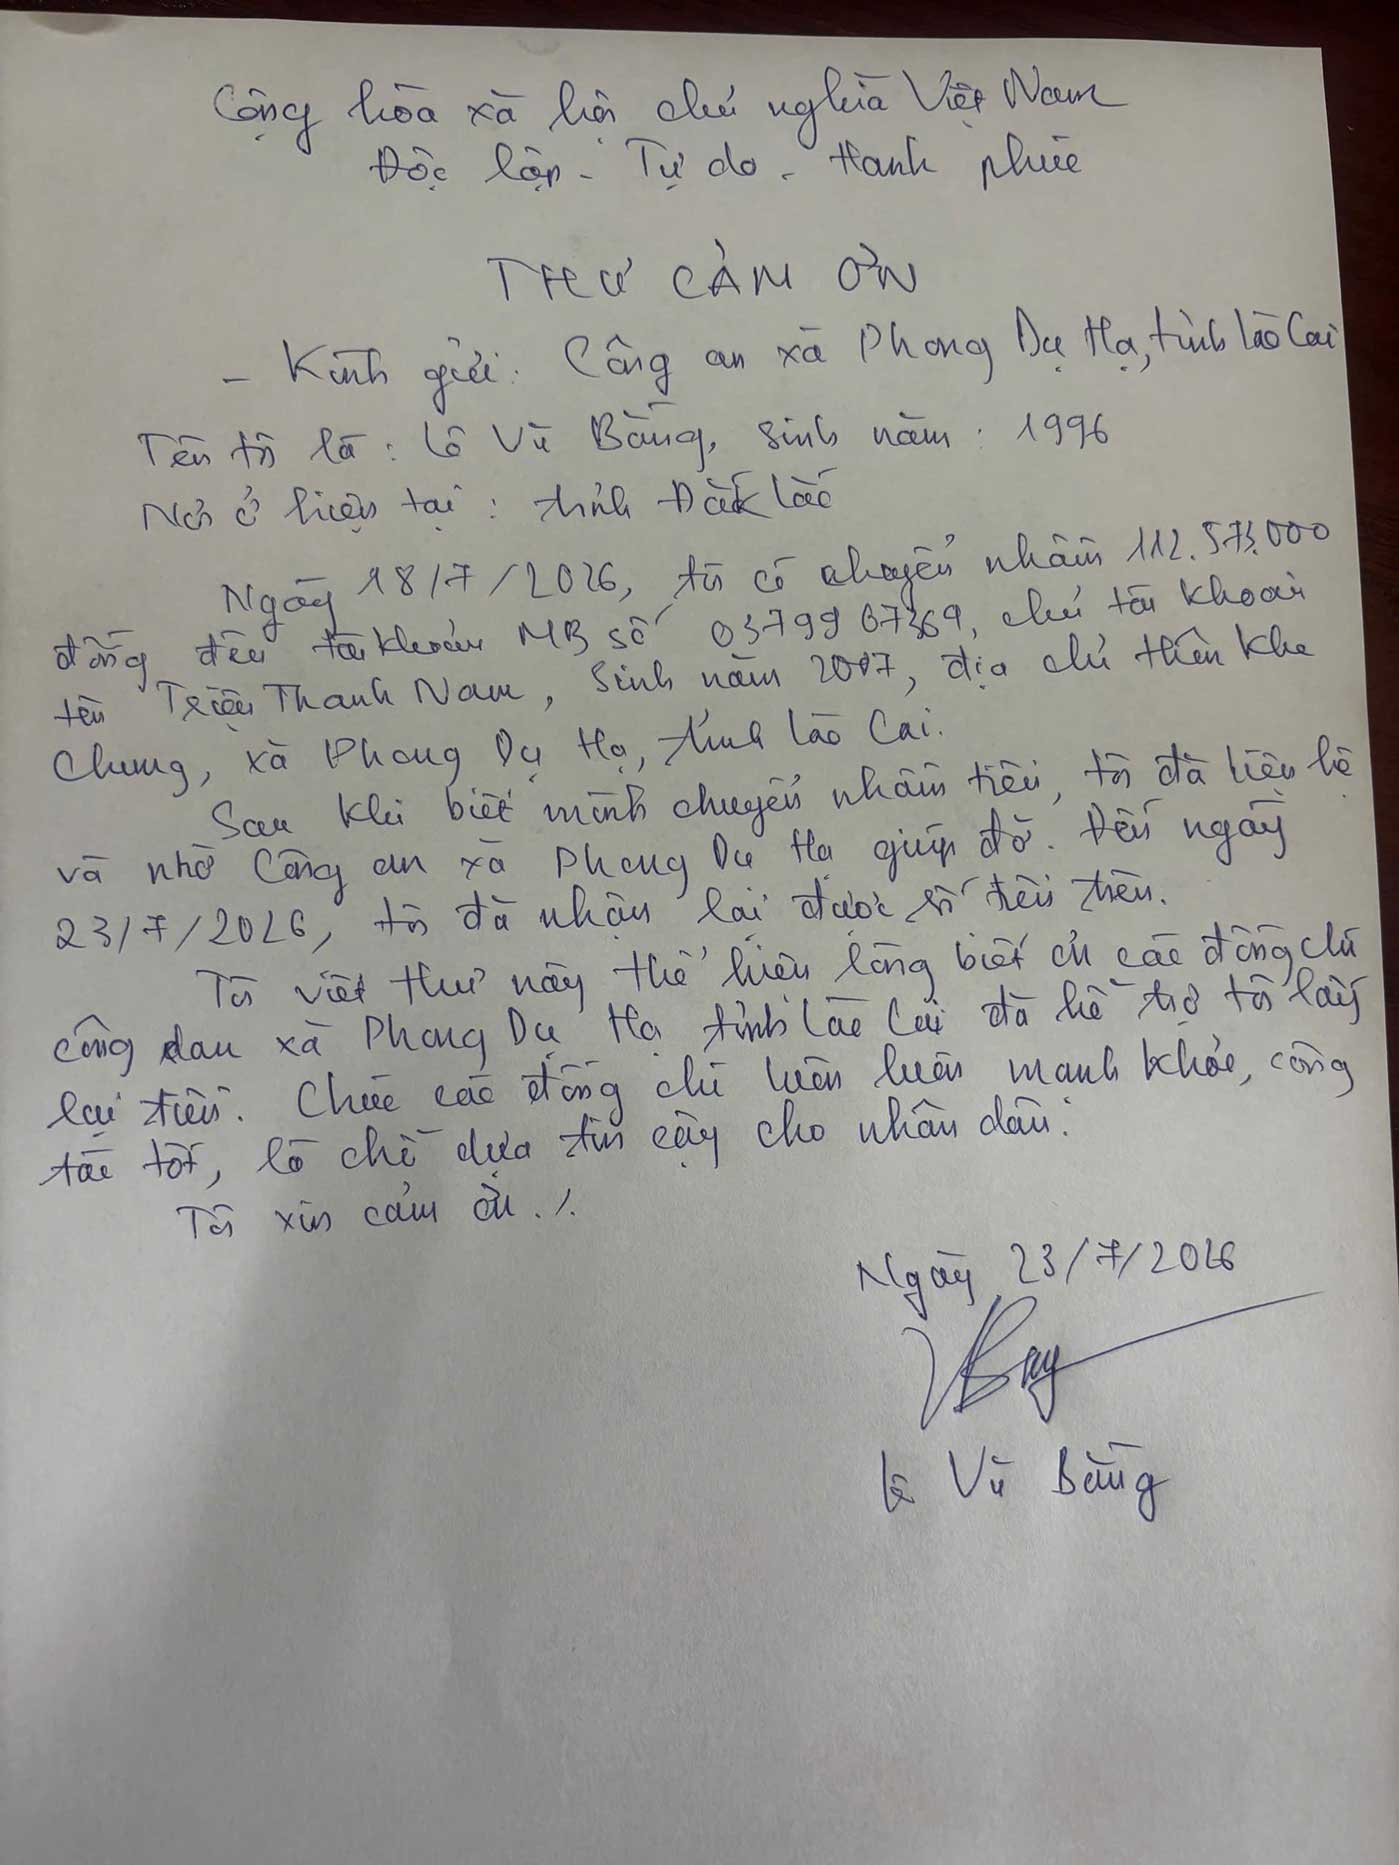 Cộng hòa xã hội chủ nghĩa Việt Nam
Độc lập - Tự do - Hanh phúc
THƯ CẢM ƠN
- Kính gửi: Công an xã Phong Dụ Hạ, tỉnh Lào Cai
Tên tôi là: Lê Vũ Bằng, sinh năm: 1996
Nơi ở hiện tại: tỉnh Đắk Lắc
Ngày 18/7/2026, tôi có chuyển nhầm 112.573.000
đồng đến tài khoản MB số 0379907369, chủ tài khoản
tên Triệu Thanh Nam, sinh năm 2007, địa chỉ thôn Khe
Chung, xã Phong Dụ Hạ, tỉnh Lào Cai.
Sau khi biết mình chuyển nhầm tiền, tôi đã liên hệ
và nhờ Công an xã Phong Dụ Hạ giúp đỡ. Đến ngày
23/7/2026, tôi đã nhận lại được số tiền trên.
Tôi viết thư này thể hiện lòng biết ơn các đồng chí
công dan xã Phong Dụ Hạ tỉnh Lào Cai đã hỗ trợ tôi lấy
lại tiền. Chúc các đồng chí luôn luôn manh khỏe, công
tác tốt, là chỗ dựa tin cậy cho nhân dân.
Tôi xin cảm ơn./.
Ngày 23/7/2026
Lê Vũ Bằng